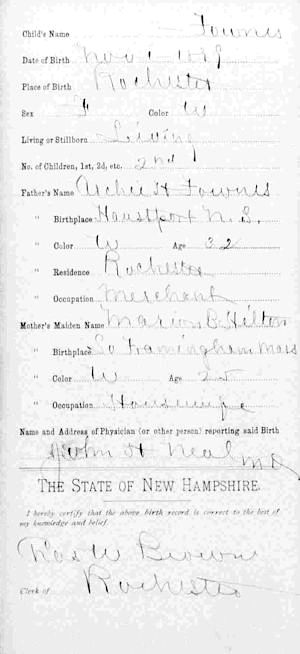 Child's Name Townes
Date of Birth Nov 1 1889
Place of Birth Rochester
Sex F Color W
Living or Stillborn Living
No. of Children, 1st, 2d, etc. 2nd
Father's Name Archie H Townes
" Birthplace N. S.
" Color W Age 32
" Residence Rochester
" Occupation Merchant
Mother's Maiden Name Marion B. Hilton
" Birthplace So Framingham Mass
" Color W Age 25
" Occupation Housewife
Name and Address of Physician (or other person) reporting said Birth
John H Neal MD
THE STATE OF NEW HAMPSHIRE.
I hereby certify that the above birth record is correct to the best of
my knowledge and belief.
W Brown
Clerk of Rochester